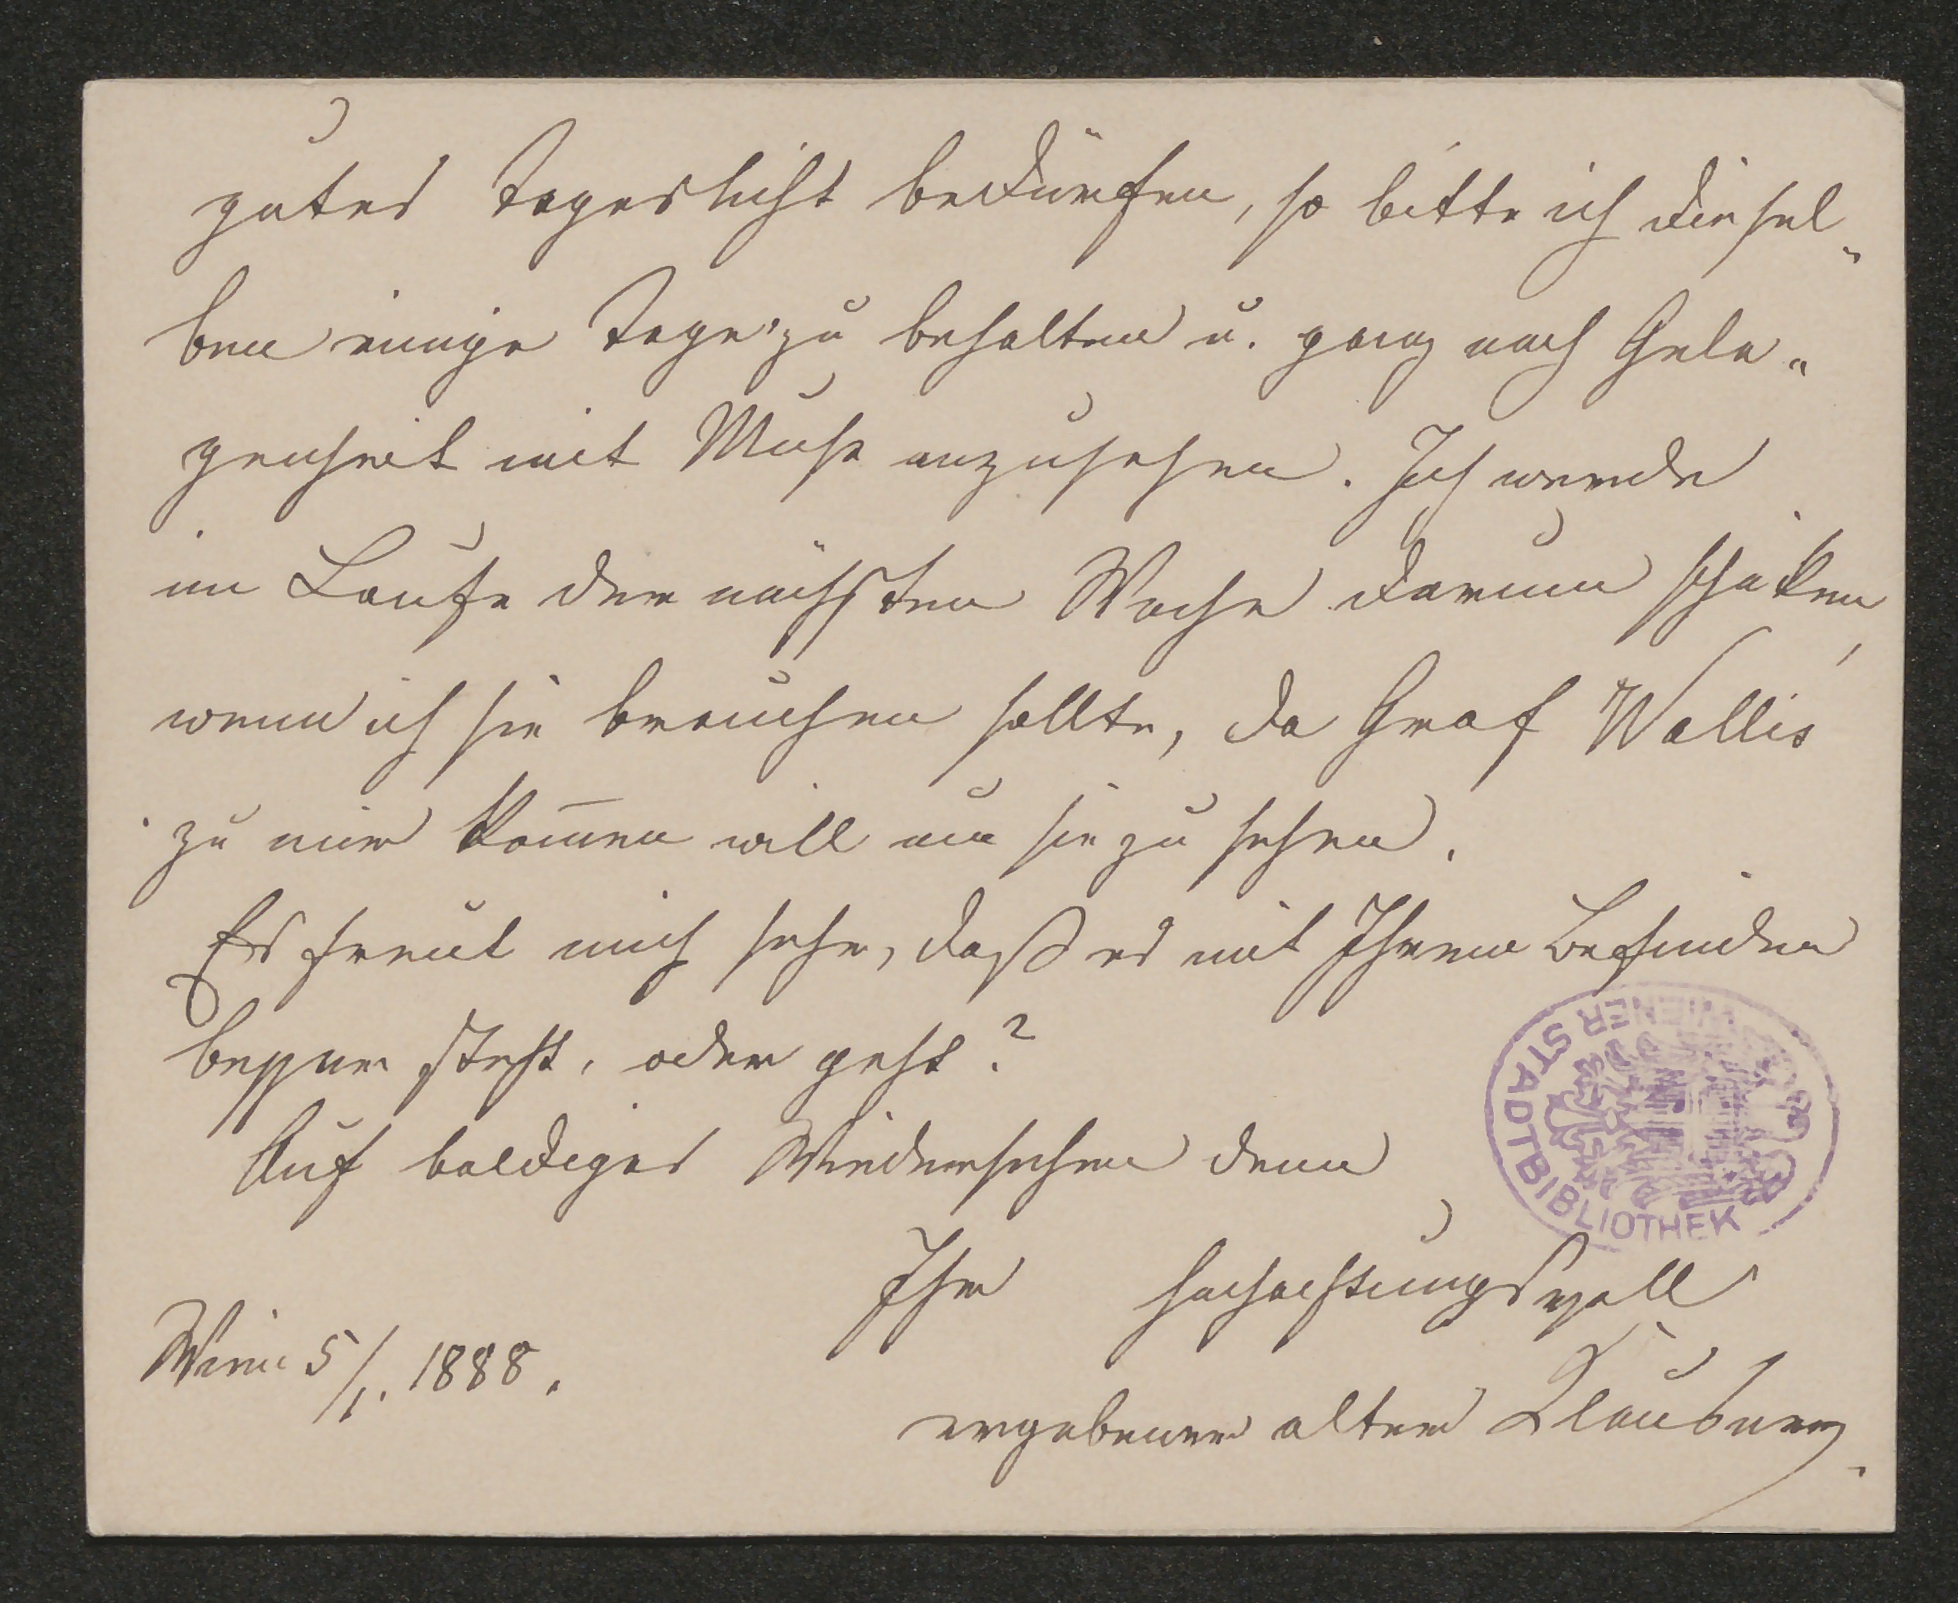 gutes Tageslicht bedürfen, so bitte ich diesel„
ben einige Tage zu behalten u. ganz nach Gele„
genheit mit Muße anzusehen. Ich werde
im Laufe der nächsten Woche darum schicken,
wenn ich sie brauchen sollte, da Graf Wallis
zu mir kom̄en will um sie zu sehen.
Es freut mich sehr, daß es mit Ihrem Befinden
besser steht, oder geht?
Auf baldiges Wiedersehen denn
Ihr hochachtungsvoll
Wien 5/1. 1888.
ergebener alter
WIENER STADTBIBLIOTHEK